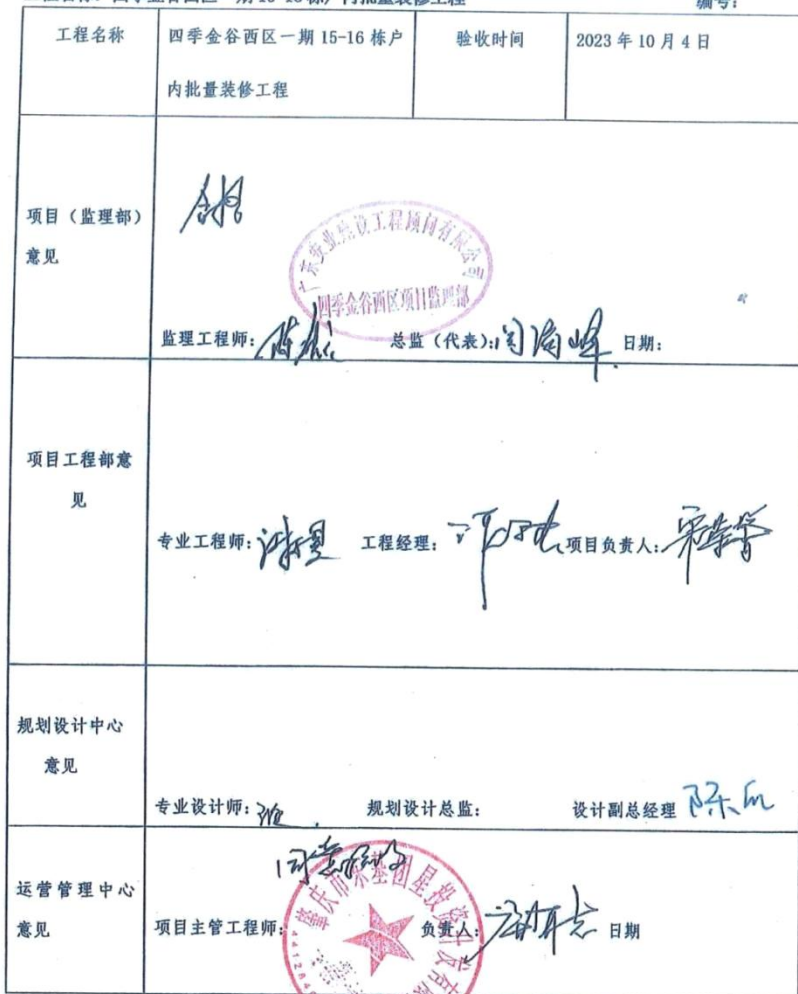 工程名称 四季金谷西区一期 15-16 栋户 验收时间 2023 年 10 月 4 日
内批量装修工程
项目（监理部）
意见
合格
广东安业建设工程顾问有限公司
四季金谷西区项目监理部
监理工程师: 总监（代表）: 日期:
项目工程部意
见
专业工程师: 工程经理: 项目负责人:
规划设计中心
意见
专业设计师: 规划设计总监: 设计副总经理
同意验收
运营管理中心
意见
项目主管工程师: 负责人: 日期